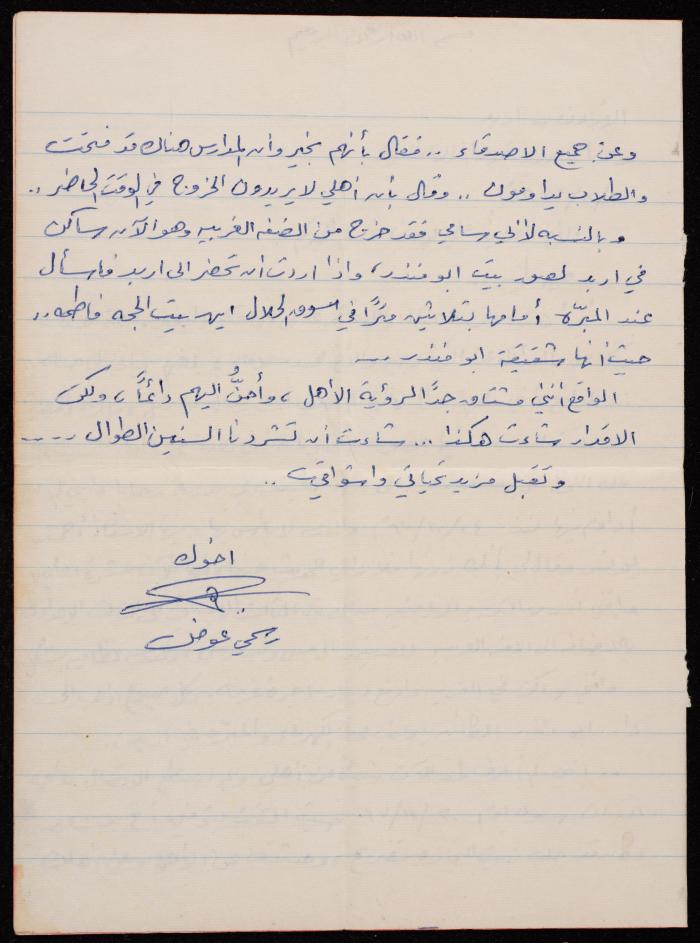 وعن جميع الاصدقاء .. فقال بأنهم بخير وان المدارس هناك قد فتحت
والطلاب يداومون .. وقال بأن أهلي لا يريدون الخروج في الوقت الحاضر ..
وبالنسبه لأخي سامي فقد خرج من الضفه الغربيه وهو الآن ساكن
في اربد بيت ابو منذر، واذا اردت ان تحضر الى اربد فاسأل
عند المبرّه أمامها بثلاثين مترًا في سوق الحلال اين بيت الحجه فاطمه ..
حيث أنها شقيقة ابو منذر ...
الواقع أنني مشتاق جدًا لرؤية الأهل، وأحنُّ اليهم دائمًا، ولكن
الاقدار شاءت هكذا ... شاءت أن تشردنا السنين الطوال ....
وتقبل مزيد تحياتي واشواقي ..
اخوك
عوض